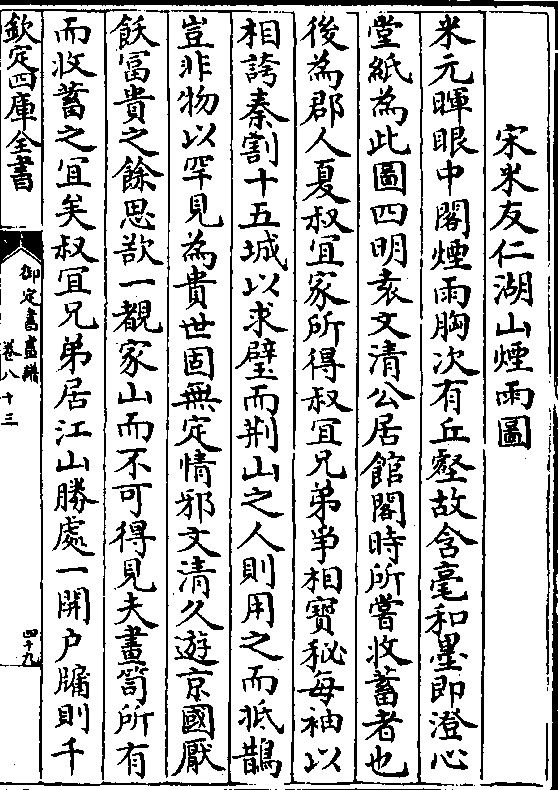 宋米友仁湖山煙雨圖
米元暉眼中閣煙雨胸次有丘壑故含毫和墨即澄心
堂紙為此圖四明袁文清公居館閣時所嘗收蓄者也
後為郡人夏叔宜家所得叔宜兄弟争相寶秘每袖以
相誇秦割十五城以求璧而荆山之人則用之而抵鵲
豈非物以罕見為貴世固無定情邪文清久遊京國厭
飫冨貴之餘思欲一覩家山而不可得見夫畫笥所有
而收蓄之宜矣叔宜兄弟居江山勝處一開户牖則千
欽定四庫全書
御定書畫譜
卷八十三
四十九